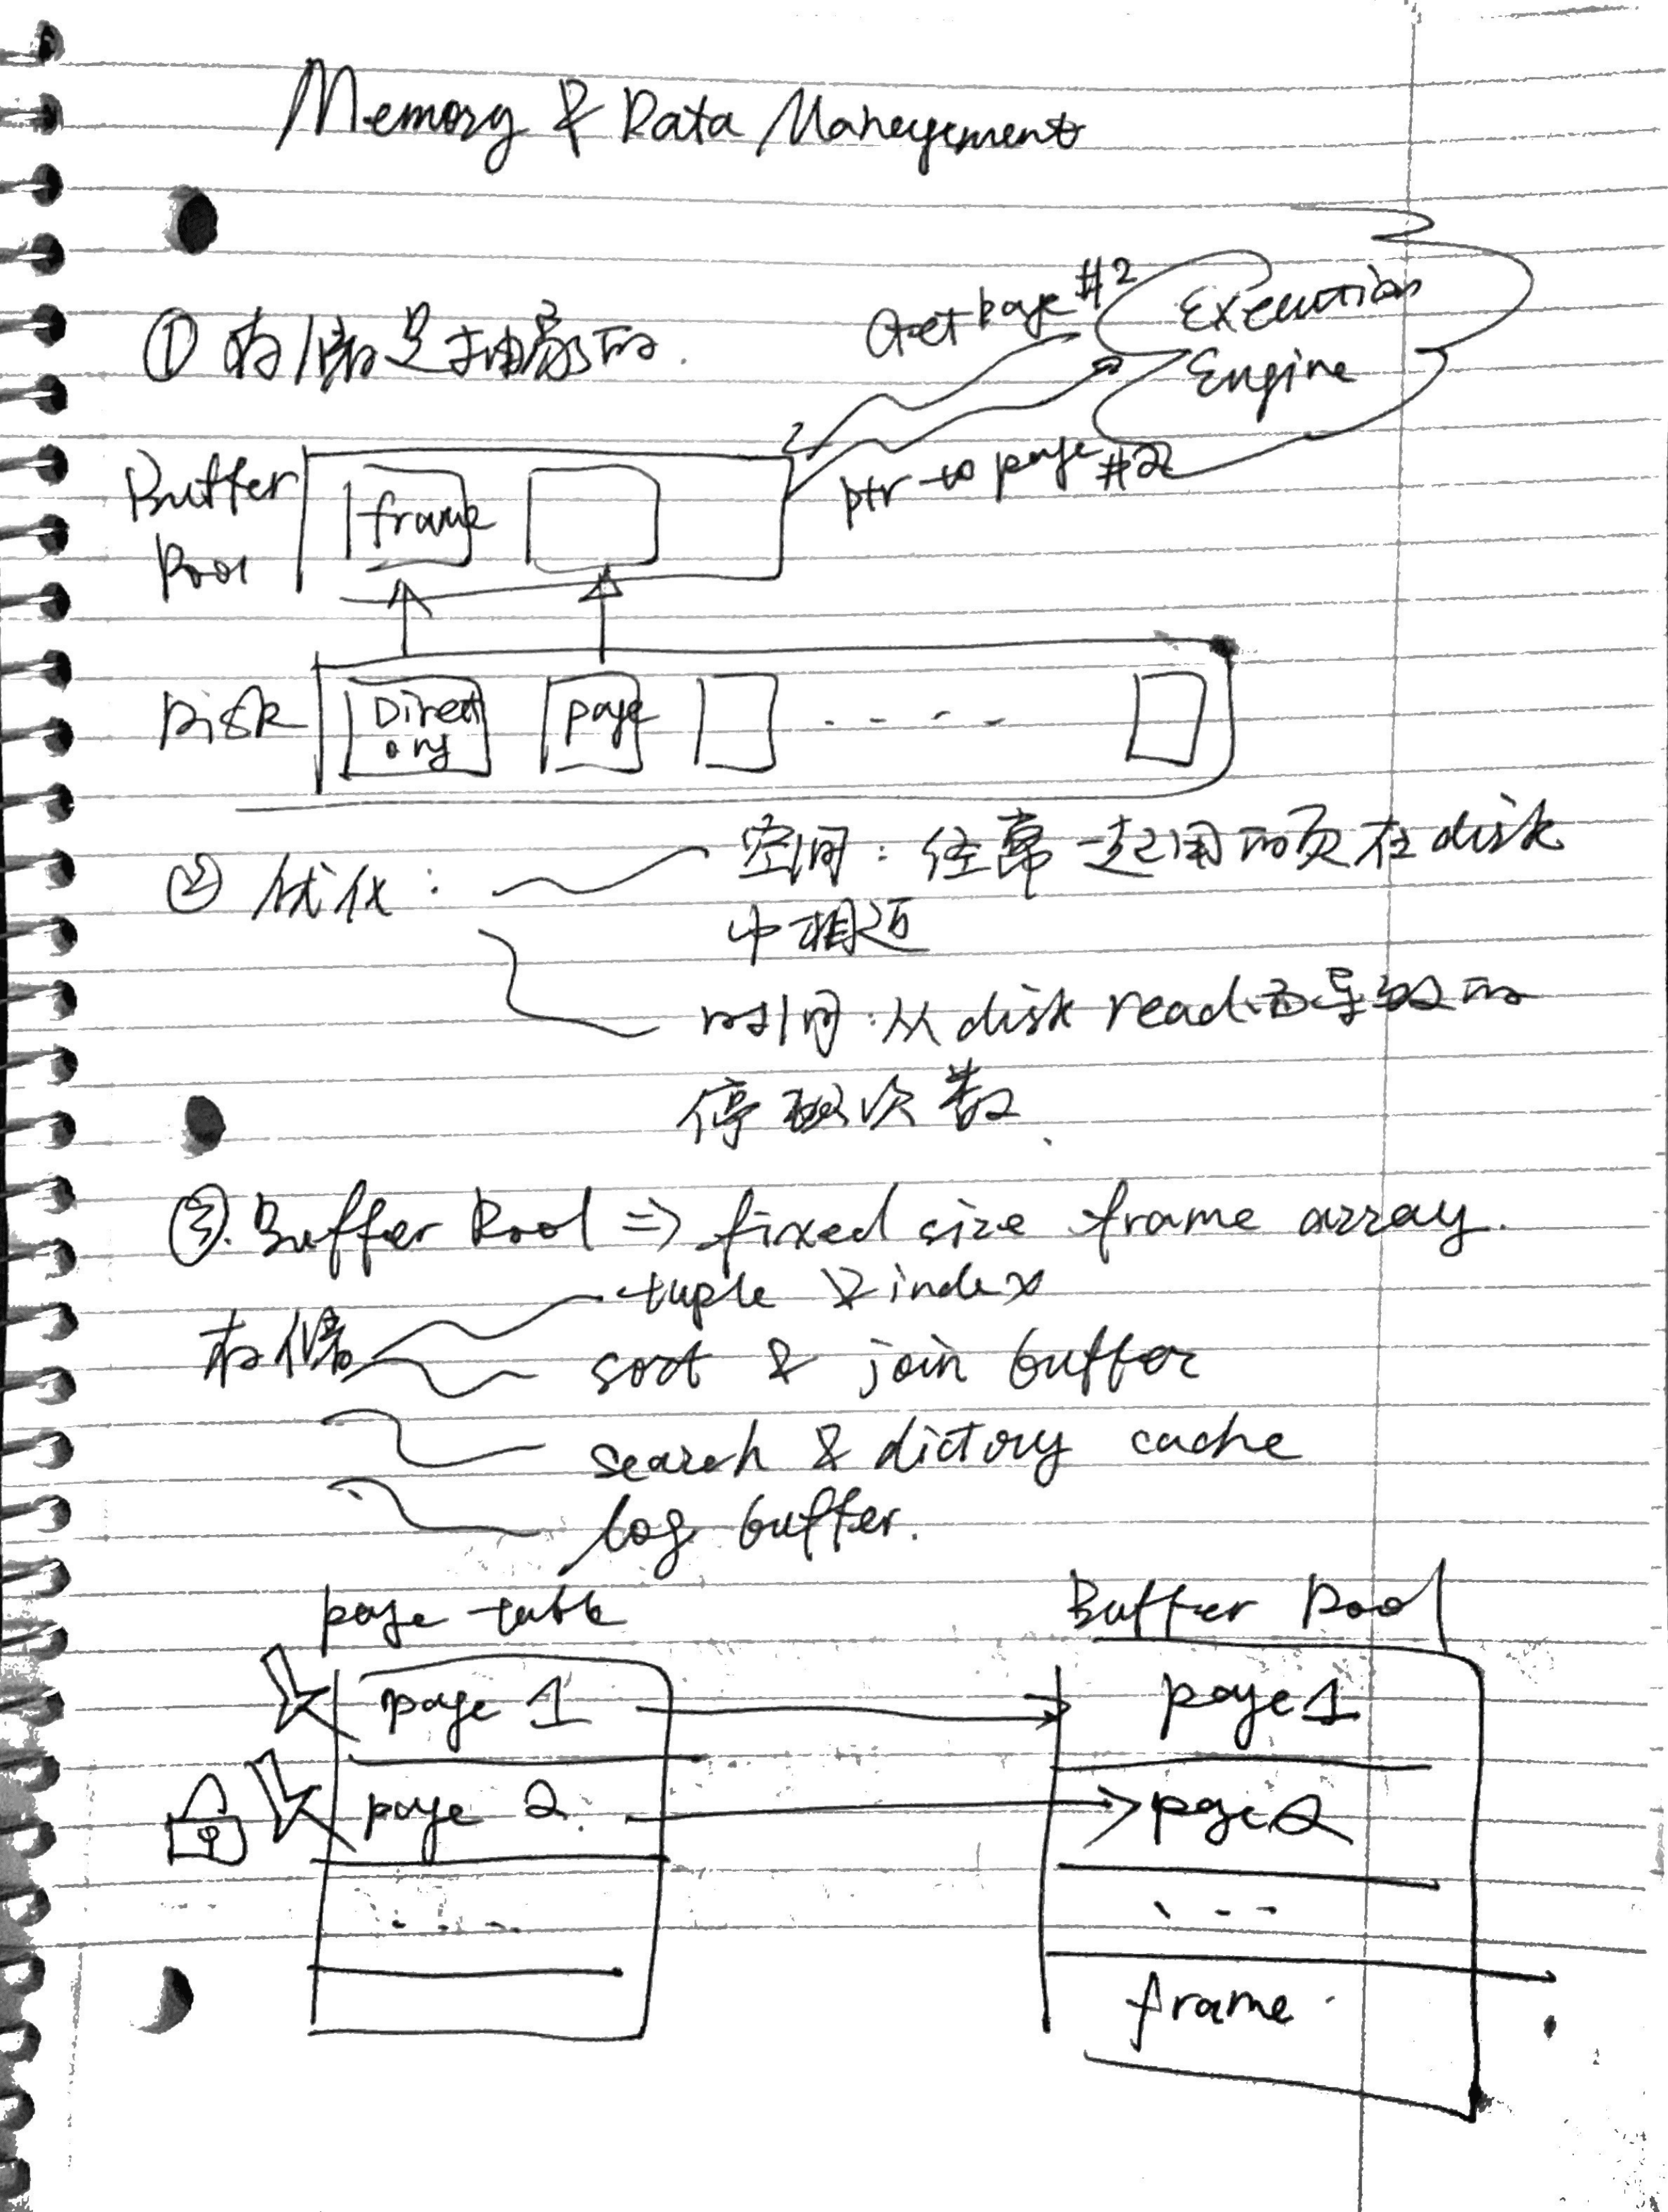 Memory & Data Management
① 存储是抽象的.
Get page #2
Execution
Engine
ptr to page #2
Buffer
Pool
frame
Disk
Direct
ory
page
....
② 优化:
空间: 经常一起用的页在disk
中相近
时间: 从disk read而导致的
停顿次数.
③. Buffer Pool => fixed size frame array.
存储
tuple & index
sort & join buffer
search & dictory cache
log buffer.
page table
Buffer Pool
page 1
page 1
page 2.
page 2
....
...
frame